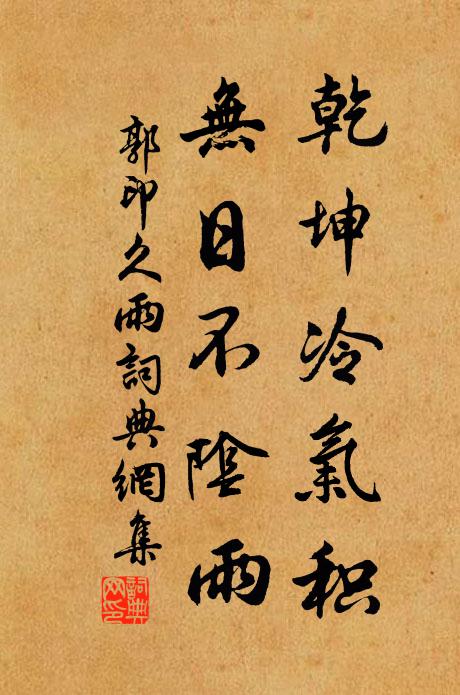 乾坤冷氣积
無日不陰雨
郭印久雨詞典網集
詞典网印